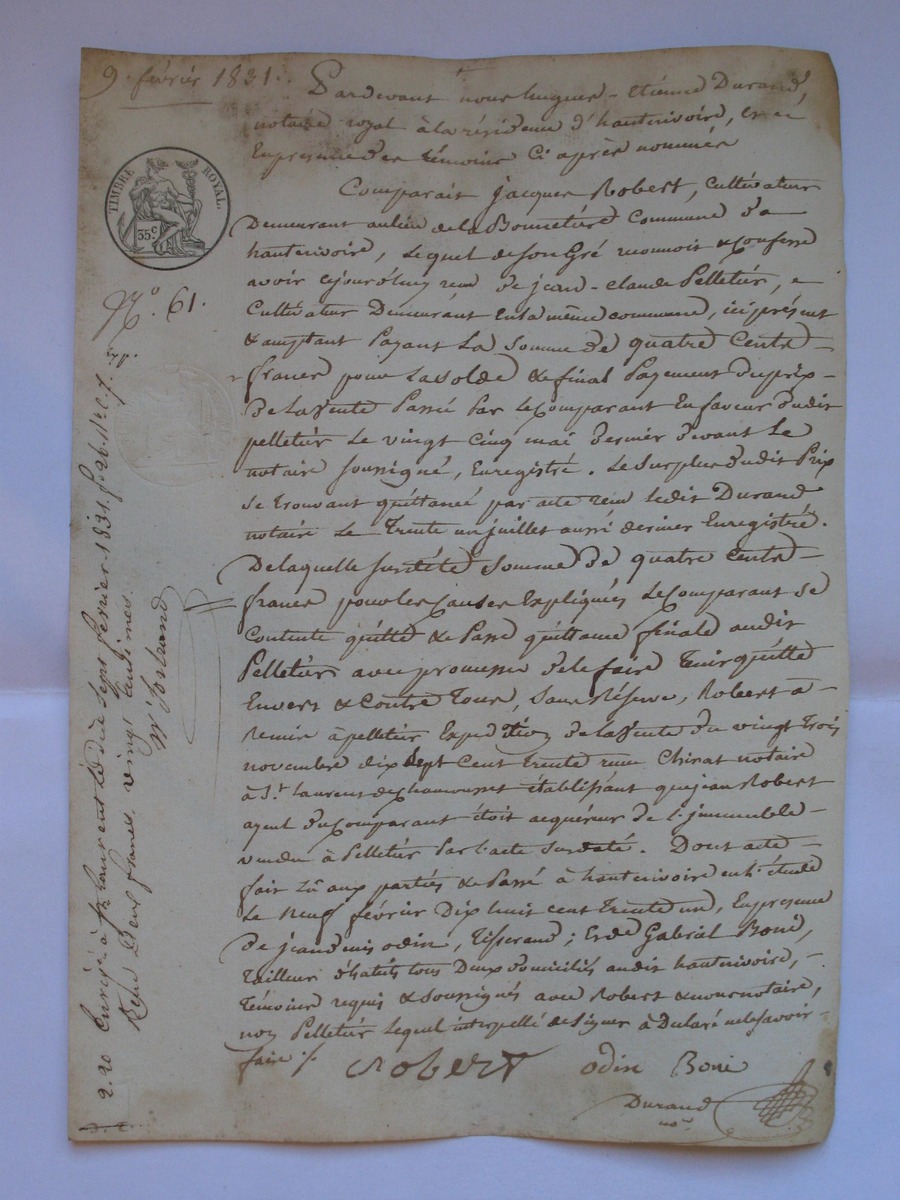 9. février 1831.
Pardevant nous hugues-Etienne Durand,
notaire royal à la résidence d'hauterivoire, et en
Enpresence des témoins Ci après nommés
Comparait jacques Robert, Cultivateur
Demeurant au lieu de la Commune d'a
hauterivoire, Lequel de son Gré reconnoit & Confesse
avoir cejourd'huy reçu de jean-claude Pelletier,
Cultivateur Demeurant En la même commune, ici présent
& acceptant Payant La Somme de quatre Cents
francs pour La solde & final Payement du prix
De la Vente Passé Par le Comparant En faveur dudit
pelletier Le vingt Cinq mai dernier devant Le
notaire soussigné, Enregistré. Le surplus dudit Prix
se trouvant quittancé par acte reçu ledit Durand
notaire Le Trente un juillet aussi dernier Enregistré.
De laquelle susditte Somme De quatre Cents
francs pour les Causes Expliqués Le Comparant se
Contente quitte & Passe quittance finale audit
Pelletier avec promesse de le faire Tenir quitte
Envers & Contre Tous, Sans Réserve, Robert à
Remis à pelletier Expedition De la Vente du vingt Trois
novembre dix sept Cent trente reçue Chirat notaire
à St. Laurent de chamousset établissant que jean Robert
ayeul du Comparant étoit acquéreur de l'immeuble
vendu à Pelletier Par l'acte Susdaté. Dont acte
fait Lû aux parties & Passé à hauterivoire en l'étude
Le neuf février Dix huit cent Trente un, En presence
De jean denis odin, Tisserand; Et de Gabriel Boni,
Tailleur d'habits tous Deux domiciliés audit hauterivoire,
Témoins requis & Soussignés avec Robert & nous notaire,
non Pelletier Lequel interpellé de Signer à Declaré ne le savoir
faire ./.
Robert odin Boni
Durand
nre
TIMBRE ROYAL.
35c
No. 61.
2.20 Enregé. à St. Laurent le dix sept fevrier 1831. fo
Reçu Deux francs vingt centimes.